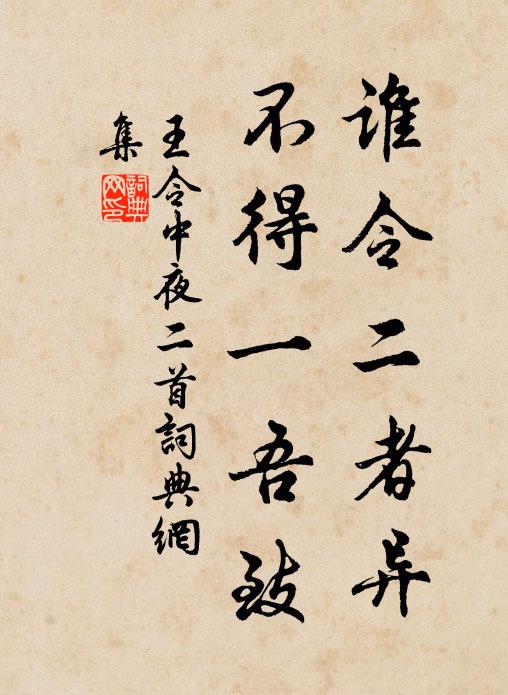 谁令二者异
不得一吾致
王令中夜二首詞典網
集
詞典
网印